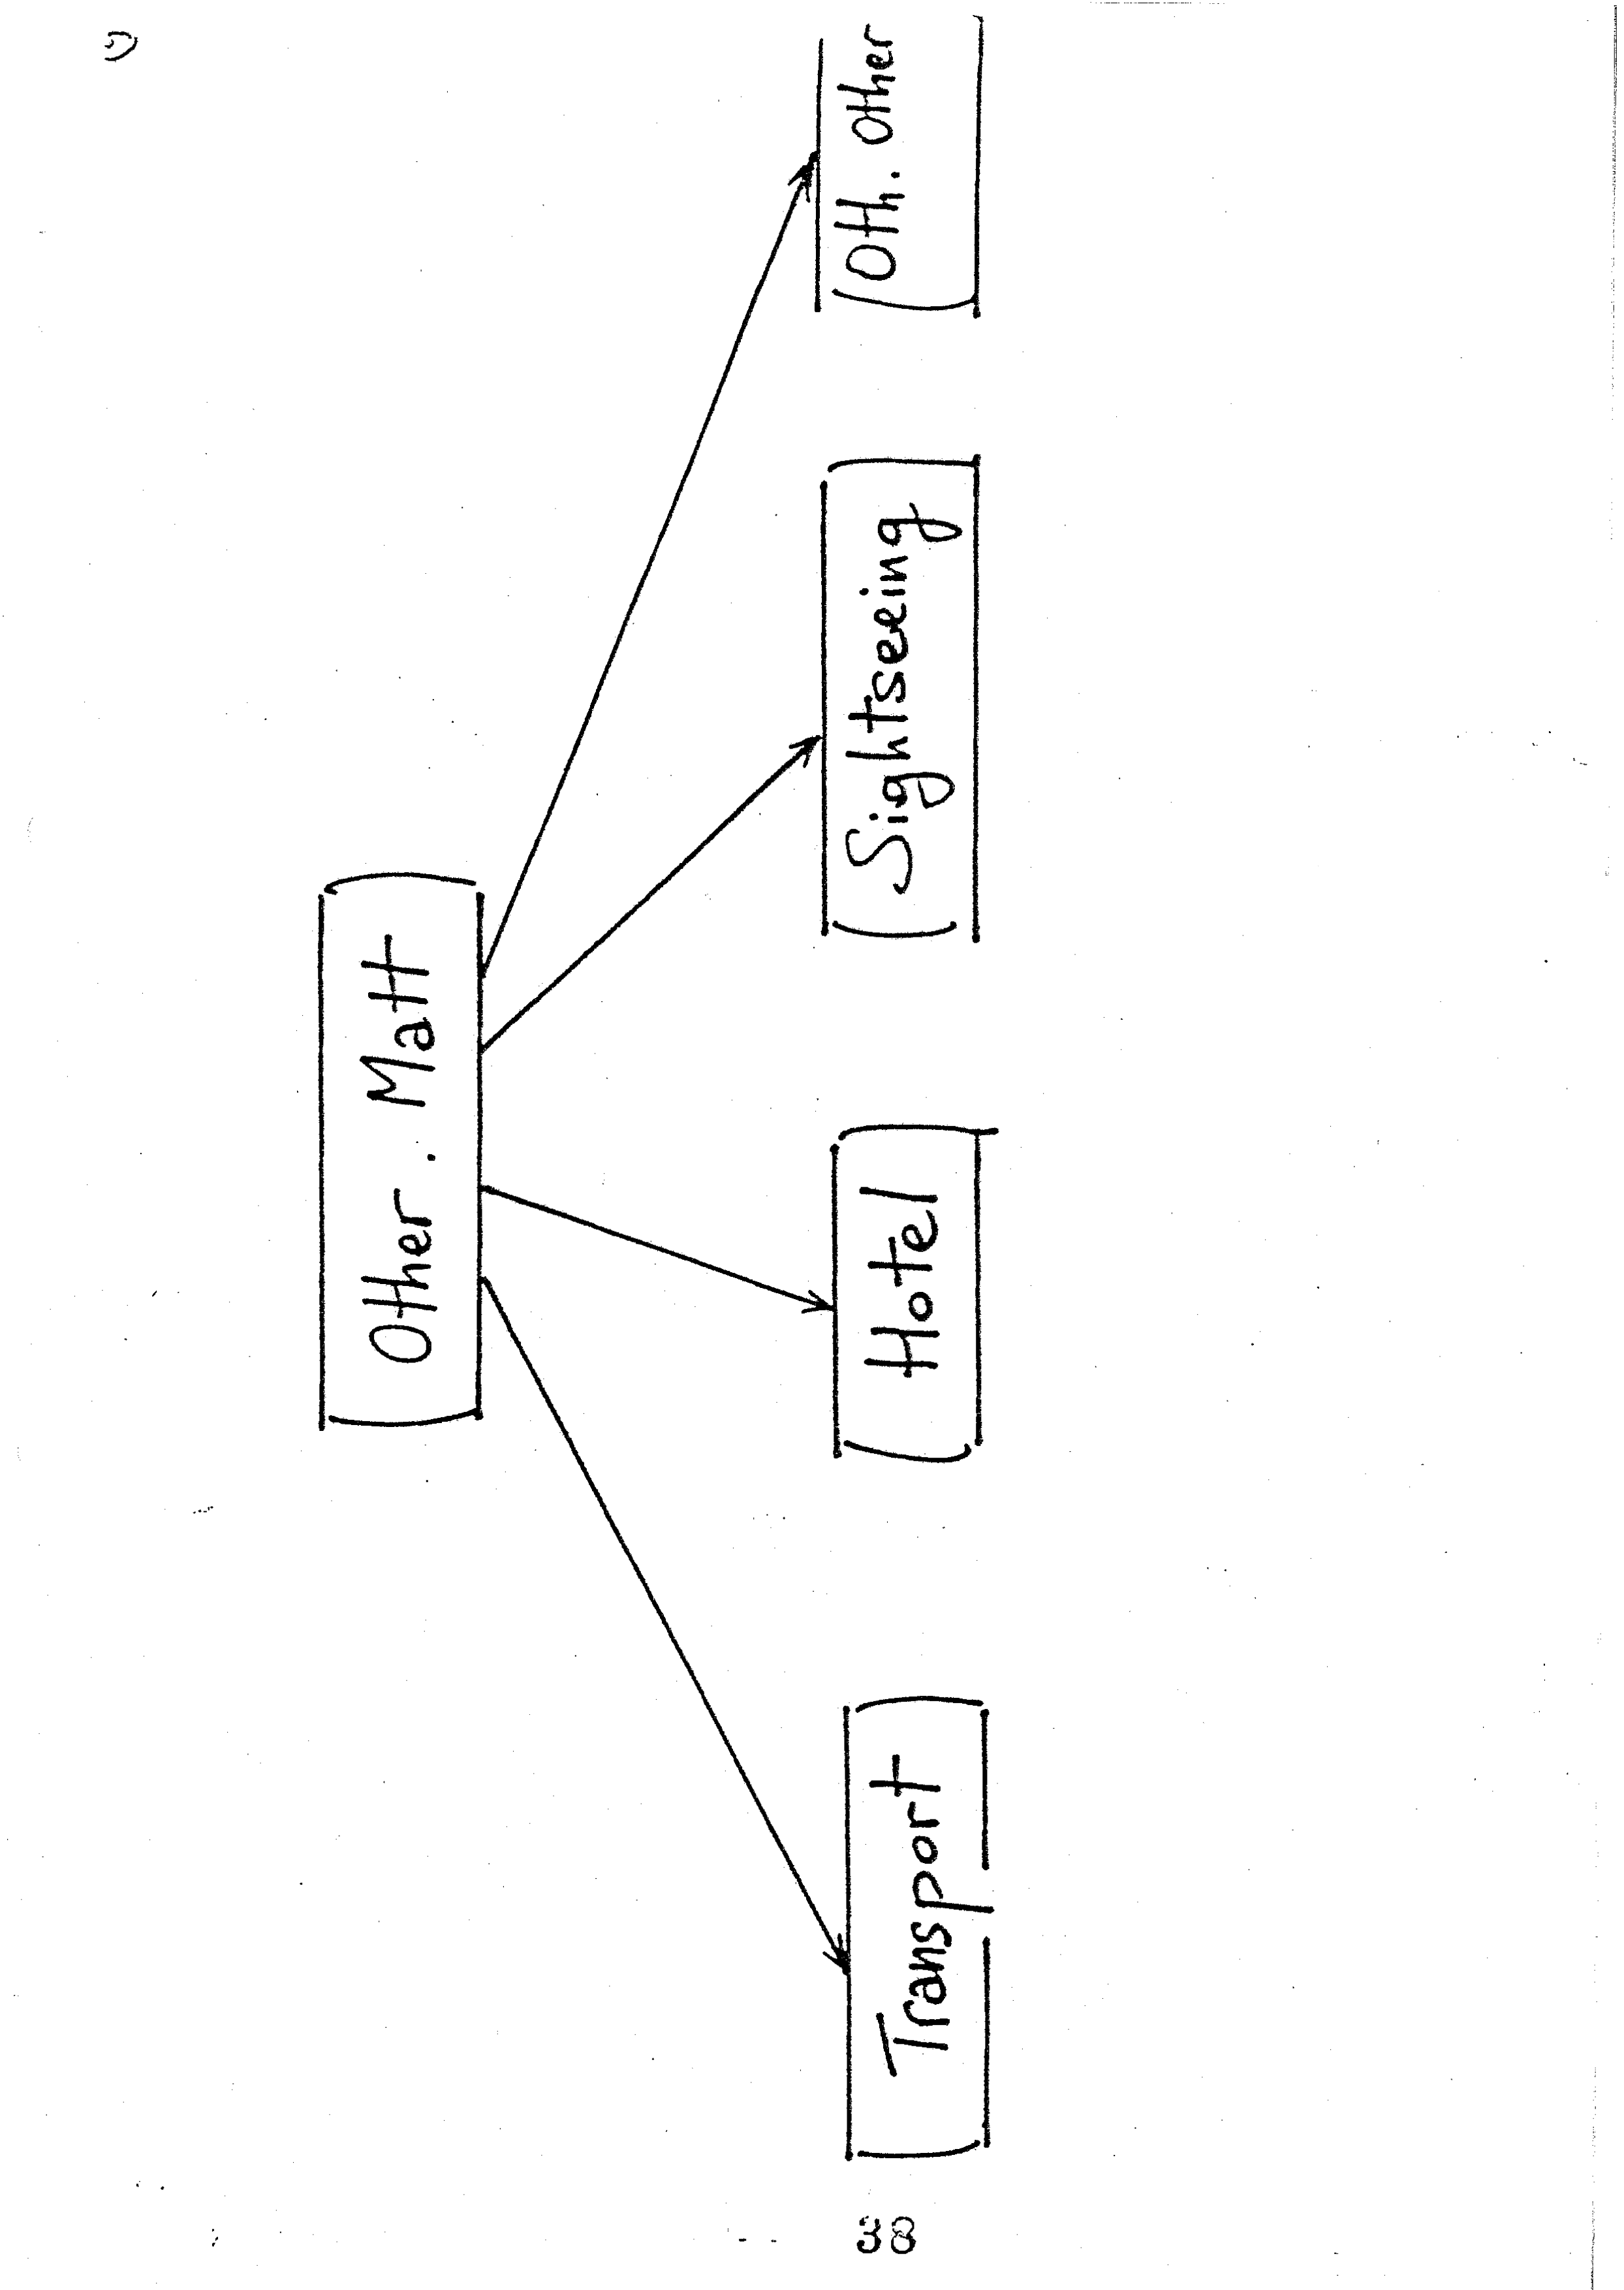 Other. Matt
Transport
Hotel
Sightseeing
Oth. Other
38